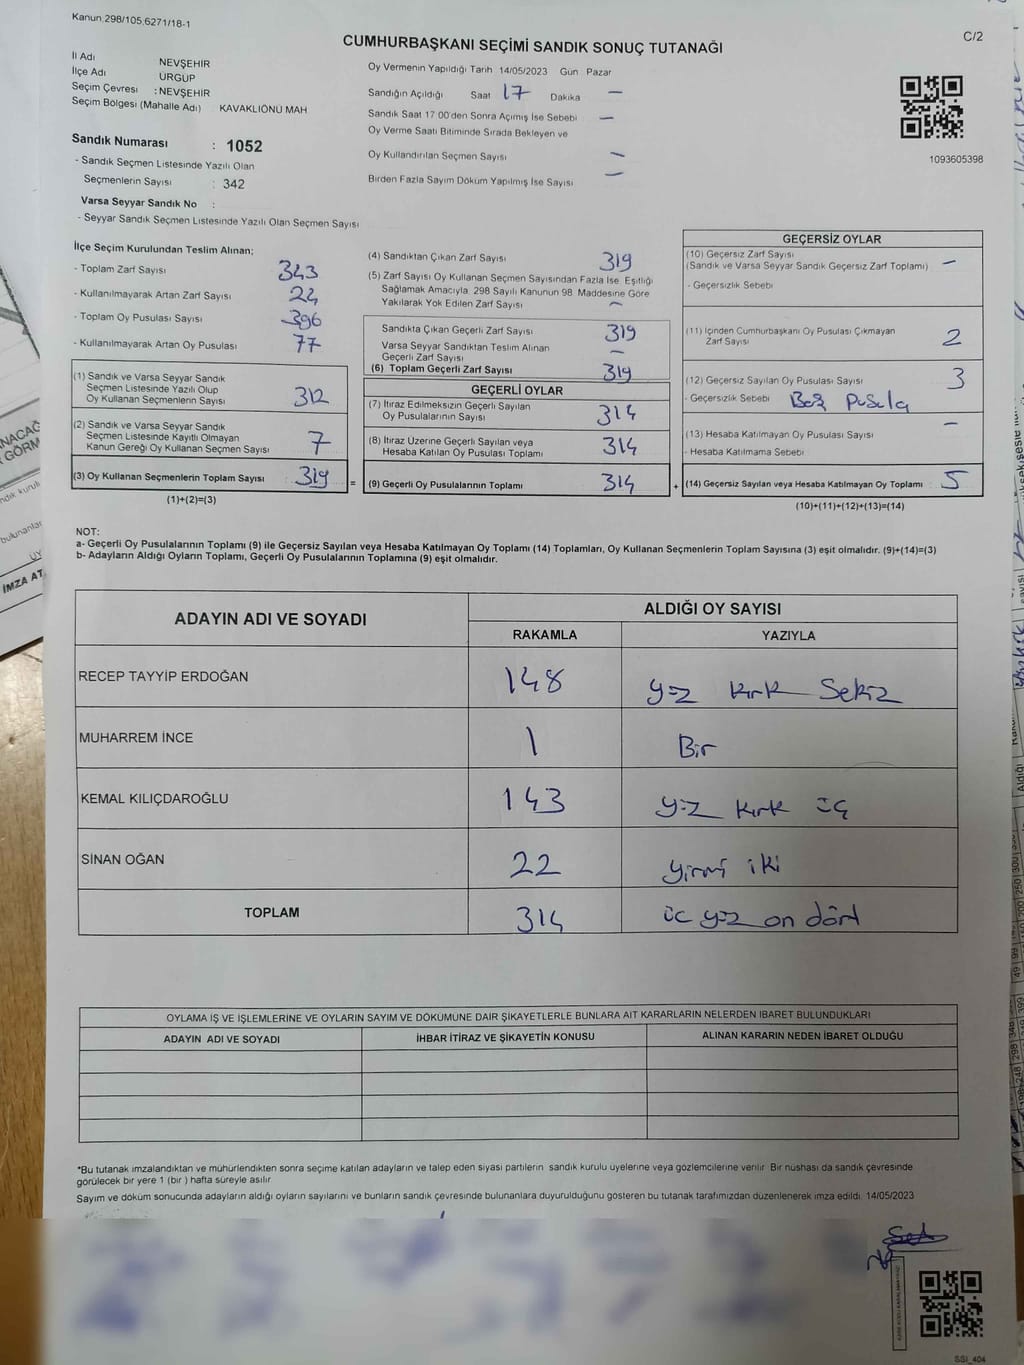 Kanun 298/105,6271/18-1
C/2
CUMHURBAŞKANI SEÇİMİ SANDIK SONUÇ TUTANAĞI
İl Adı NEVŞEHİR
İlçe Adı ÜRGÜP
Seçim Çevresi : NEVŞEHİR
Seçim Bölgesi (Mahalle Adı) KAVAKLIÖNÜ MAH
Sandık Numarası : 1052
- Sandık Seçmen Listesinde Yazılı Olan
Seçmenlerin Sayısı : 342
Varsa Seyyar Sandık No :
- Seyyar Sandık Seçmen Listesinde Yazılı Olan Seçmen Sayısı
Oy Vermenin Yapıldığı Tarih 14/05/2023 Gün Pazar
Sandığın Açıldığı Saat 17 Dakika —
Sandık Saat 17 00'den Sonra Açımış İse Sebebi —
Oy Verme Saati Bitiminde Sırada Bekleyen ve
Oy Kullandırılan Seçmen Sayısı —
Birden Fazla Sayım Döküm Yapılmış İse Sayısı —
1093605398
İlçe Seçim Kurulundan Teslim Alınan;
- Toplam Zarf Sayısı 343
- Kullanılmayarak Artan Zarf Sayısı 24
- Toplam Oy Pusulası Sayısı 396
- Kullanılmayarak Artan Oy Pusulası 77
(1) Sandık ve Varsa Seyyar Sandık
Seçmen Listesinde Yazılı Olup
Oy Kullanan Seçmenlerin Sayısı 312
(2) Sandık ve Varsa Seyyar Sandık
Seçmen Listesinde Kayıtlı Olmayan
Kanun Gereği Oy Kullanan Seçmen Sayısı 7
(3) Oy Kullanan Seçmenlerin Toplam Sayısı 319 =
(1)+(2)=(3)
(4) Sandıktan Çıkan Zarf Sayısı 319
(5) Zarf Sayısı Oy Kullanan Seçmen Sayısından Fazla İse Eşitliği
Sağlamak Amacıyla 298 Sayılı Kanunun 98. Maddesine Göre
Yakılarak Yok Edilen Zarf Sayısı —
Sandıkta Çıkan Geçerli Zarf Sayısı 319
Varsa Seyyar Sandıktan Teslim Alınan
Geçerli Zarf Sayısı —
(6) Toplam Geçerli Zarf Sayısı 319
GEÇERLİ OYLAR
(7) İtiraz Edilmeksizin Geçerli Sayılan
Oy Pusulalarının Sayısı 314
(8) İtiraz Üzerine Geçerli Sayılan veya
Hesaba Katılan Oy Pusulası Toplamı 314
(9) Geçerli Oy Pusulalarının Toplamı 314 +
GEÇERSİZ OYLAR
(10) Geçersiz Zarf Sayısı
(Sandık ve Varsa Seyyar Sandık Geçersiz Zarf Toplamı) —
- Geçersizlik Sebebi
(11) İçinden Cumhurbaşkanı Oy Pusulası Çıkmayan
Zarf Sayısı 2
(12) Geçersiz Sayılan Oy Pusulası Sayısı 3
- Geçersizlik Sebebi Boş Pusula
(13) Hesaba Katılmayan Oy Pusulası Sayısı —
- Hesaba Katılmama Sebebi
(14) Geçersiz Sayılan veya Hesaba Katılmayan Oy Toplamı : 5
(10)+(11)+(12)+(13)=(14)
NOT:
a- Geçerli Oy Pusulalarının Toplamı (9) ile Geçersiz Sayılan veya Hesaba Katılmayan Oy Toplamı (14) Toplamları, Oy Kullanan Seçmenlerin Toplam Sayısına (3) eşit olmalıdır. (9)+(14)=(3)
b- Adayların Aldığı Oyların Toplamı, Geçerli Oy Pusulalarının Toplamına (9) eşit olmalıdır.
ADAYIN ADI VE SOYADI ALDIĞI OY SAYISI
RAKAMLA YAZIYLA
RECEP TAYYİP ERDOĞAN 148 yüz kırk sekiz
MUHARREM İNCE 1 Bir
KEMAL KILIÇDAROĞLU 143 yüz kırk üç
SİNAN OĞAN 22 yirmi iki
TOPLAM 314 üc yüz on dört
OYLAMA İŞ VE İŞLEMLERİNE VE OYLARIN SAYIM VE DÖKÜMÜNE DAİR ŞİKAYETLERLE BUNLARA AİT KARARLARIN NELERDEN İBARET BULUNDUKLARI
ADAYIN ADI VE SOYADI İHBAR İTİRAZ VE ŞİKAYETİN KONUSU ALINAN KARARIN NEDEN İBARET OLDUĞU
*Bu tutanak imzalandıktan ve mühürlendikten sonra seçime katılan adayların ve talep eden siyasi partilerin sandık kurulu üyelerine veya gözlemcilerine verilir Bir nüshası da sandık çevresinde
görülecek bir yere 1 (bir ) hafta süreyle asılır
Sayım ve döküm sonucunda adayların aldığı oyların sayılarını ve bunların sandık çevresinde bulunanlara duyurulduğunu gösteren bu tutanak tarafımızdan düzenlenerek imza edildi. 14/05/2023
SSİ_404